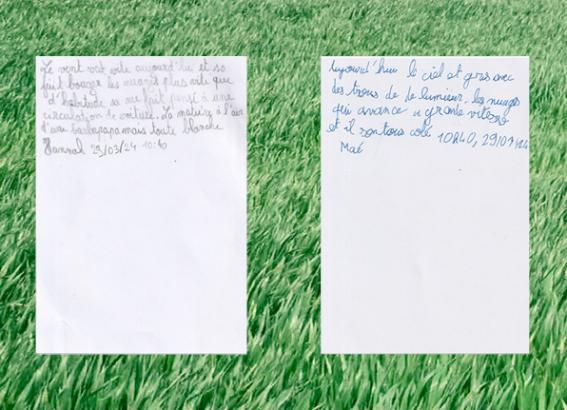 Le vent vat vite aujourd'hui et sa
fait bouger les nuages plus vite que
d'habitude sa me fait pensé à une
circulation de voiture. La matière à l'air
d'une barbapapa mais toute blanche
29/03/24 10:40
Aujourd'hui le ciel et gris avec
des trous de de lumiur. les nuages
qui avance a grande vitesse
et il son tous colé 10h40, 29/03/24
Maé